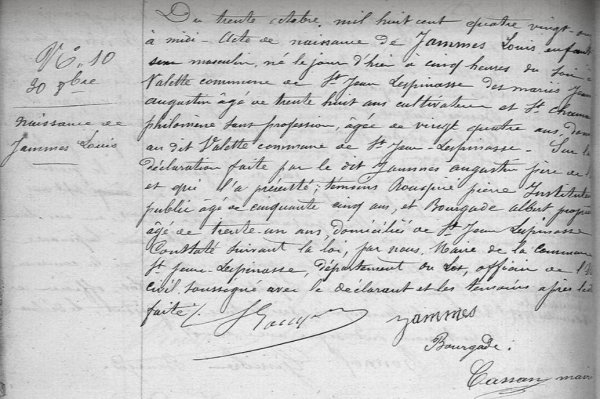 N°. 10
30 8bre
naissance de
Jammes Louis
Du trente octobre mil huit cent quatre vingt
à midi - Acte de naissance de Jammes Louis, enfant
sexe masculin, né le jour d'hier à cinq heures du soir à
Valette commune de St Jean Lespinasse des mariés Jam
augustin âgé de trente huit ans cultivateur et St
philomène sans profession, âgée de vingt quatre ans, dem
au dit Valette commune de St Jean-Lespinasse. Sur la
déclaration faite par le dit Jammes augustin père de
et qui l'a présenté; temoins pierre, Institute
public âgé de cinquante cinq ans, et Bourgade albert, propri
âgé de trente un ans, domiciliés de St Jean Lespinasse
Constaté suivant la loi, par nous, Maire de la commune
St Jean-Lespinasse, département du Lot, officier de l'
civil, soussigné avec le déclarant et les temoins apres
faite /.
Jammes
Bourgade.
Cassan maire